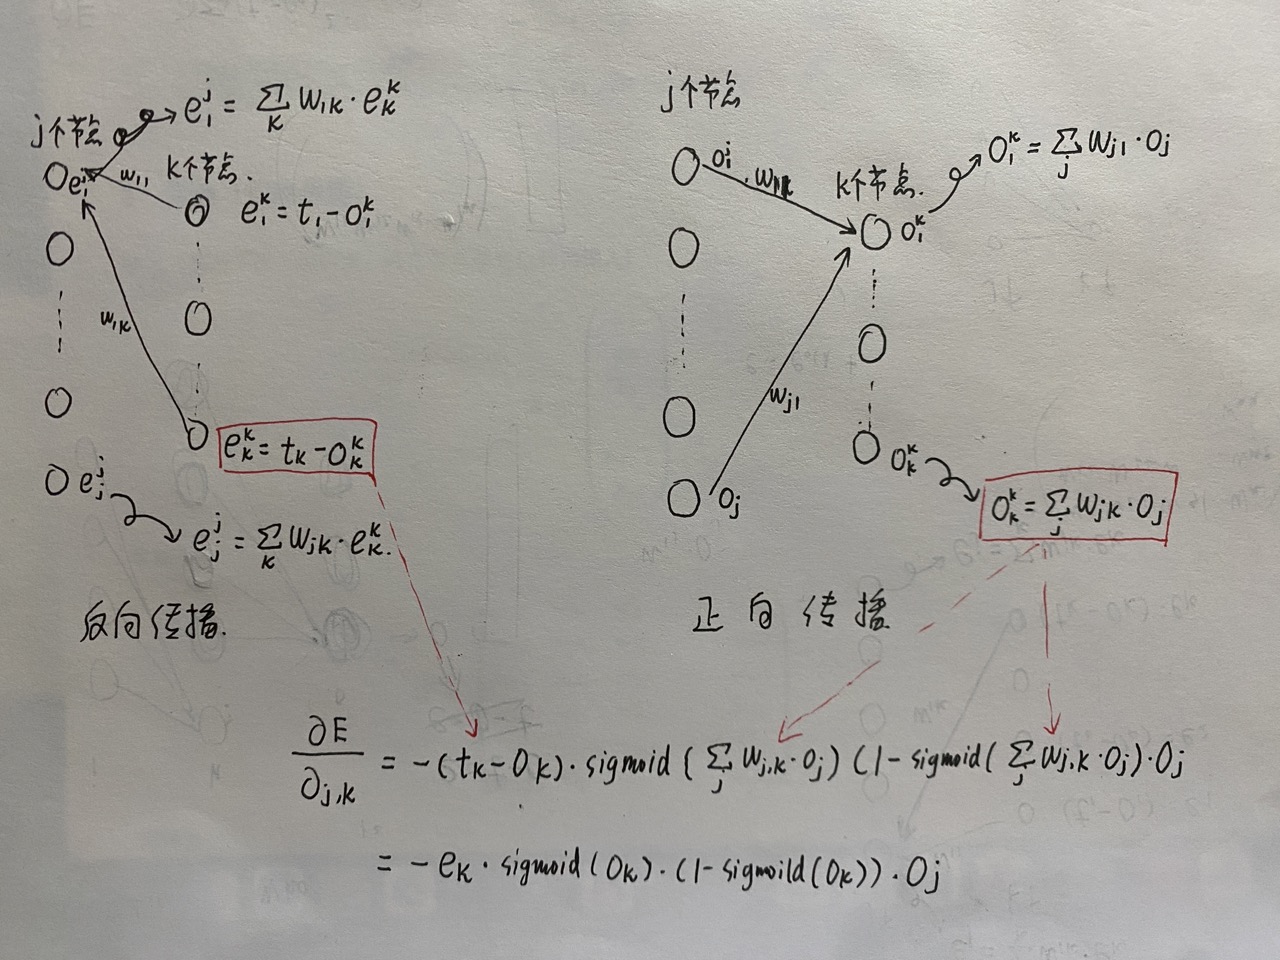 j个节点
e₁ʲ = ∑ₖ w₁ₖ · eₖᵏ
e₁ʲ
w₁₁
k个节点.
e₁ᵏ = t₁ - o₁ᵏ
w₁ₖ
eₖᵏ = tₖ - oₖᵏ
eⱼʲ
eⱼʲ = ∑ₖ wⱼₖ · eₖᵏ.
反向传播.
j个节点
o₁ʲ
k个节点.
o₁ᵏ = ∑ⱼ wⱼ₁ · oⱼ
o₁ᵏ
wⱼ₁
oₖᵏ
oⱼ
oₖᵏ = ∑ⱼ wⱼₖ · oⱼ
正向传播
∂E / ∂ⱼ,ₖ = -(tₖ - oₖ) · sigmoid(∑ⱼ wⱼ,ₖ · oⱼ)(1 - sigmoid(∑ⱼ wⱼ,ₖ · oⱼ) · oⱼ
= -eₖ · sigmoid(oₖ) · (1 - sigmoild(oₖ)) · oⱼ